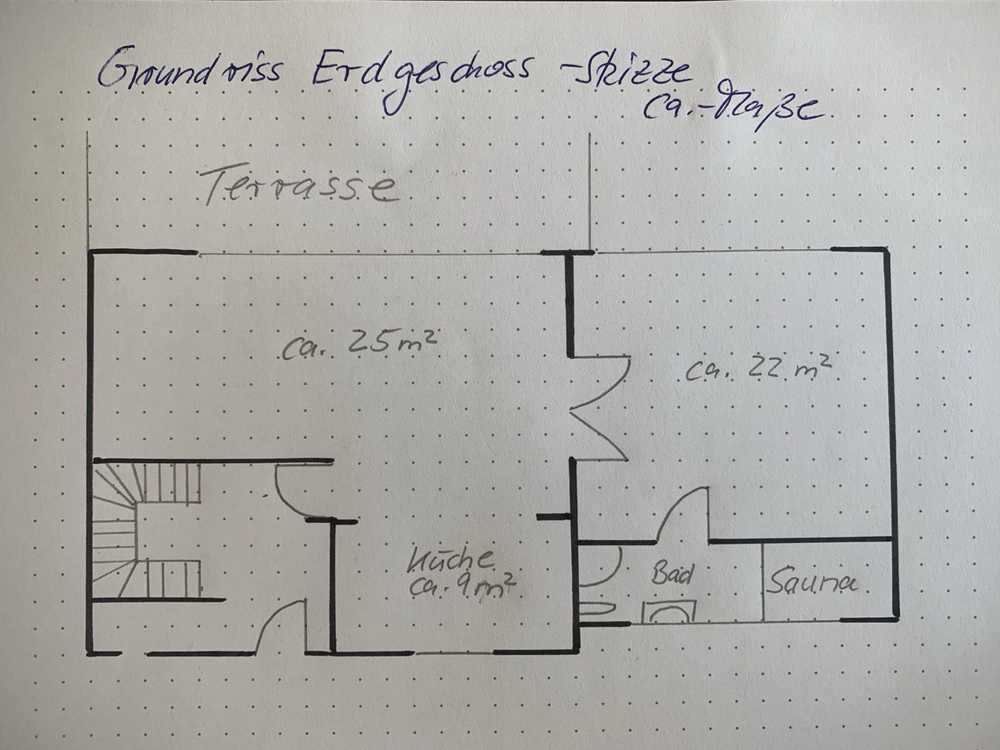 Grundriss Erdgeschoss - Skizze
ca.-Maße
Terrasse
ca. 25 m²
ca. 22 m²
Küche
ca. 9 m²
Bad
Sauna